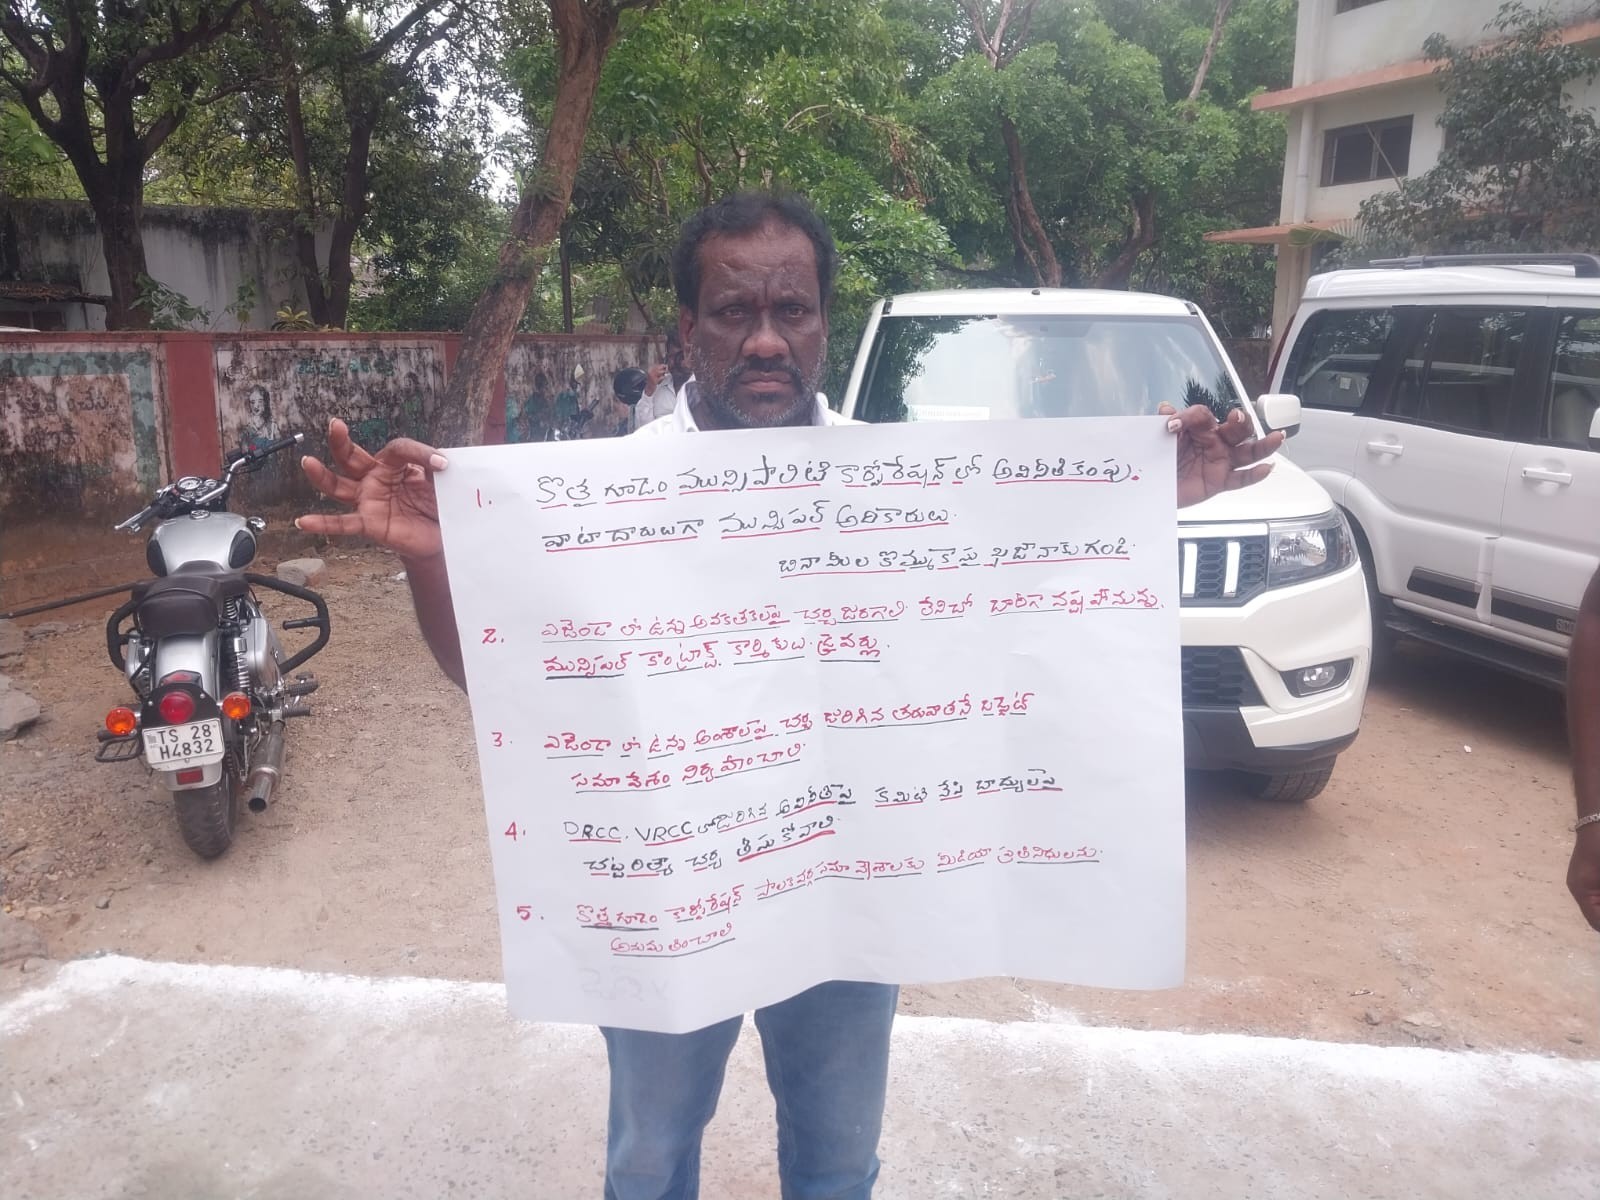 1. కొత్త గూడెం మున్సిపాలిటి కార్పోరేషన్ లో అవినీతి కంపు.
వాటాదారులుగా మున్సిపల్ అధికారులు.
బినామీల కొమ్ముకాపై ఖజానాకు గండి.
2. ఎజెండా లో ఉన్న అవకతకలపై చర్చ జరగాలి. లేనిచో భారీగా నష్ట పోనున్న
మున్సిపల్ కాంట్రాక్ట్. కార్మికులు. డ్రైవర్లు.
3. ఎజెండా లో ఉన్న అంశాలపై చర్చ జరిగిన తరువాతనే బడ్జెట్
సమావేశం నిర్వహించాలి.
4. DRCC, VRCC లో జరిగిన అవినీతిపై కమిటి వేసి బాద్యులపై
చట్టరిత్యా చర్చ తీసుకోవాలి.
5. కొత్తగూడెం కార్పోరేషన్ పాలకవర్గ సమావేశాలకు మీడియా ప్రతినిధులను.
అనుమతించాలి
TS 28
H4832